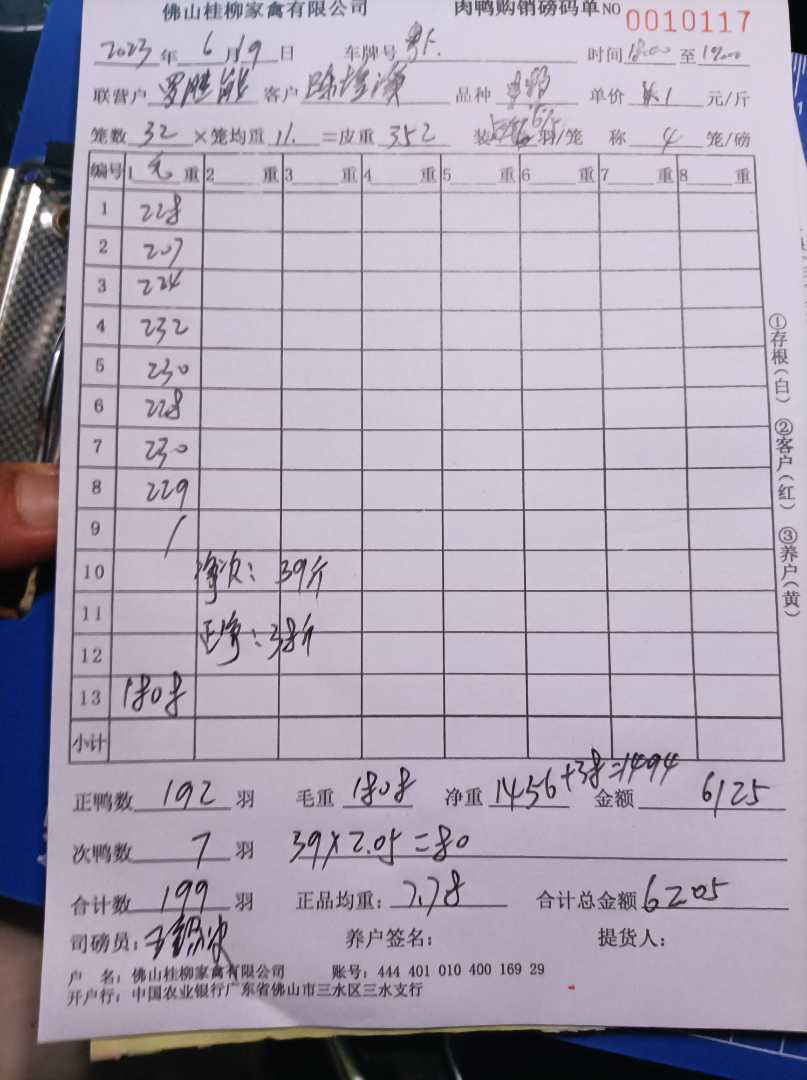 佛山桂柳家禽有限公司 肉鸭购销磅码单 NO 0010117
2023年6月19日 车牌号 粤 时间 至
联营户 客户 品种 单价 元/斤
笼数 32 ×笼均重 11. =皮重 352 装 6 羽/笼 称 4 笼/磅
编号 1 毛 重 2 重 3 重 4 重 5 重 6 重 7 重 8 重
1 228
2 207
3 224
4 232
5 230
6 228
7 230
8 229
9 /
10 净次: 39斤
11 正净: 38斤
12
13 1808
小计
正鸭数 192 羽 毛重 1808 净重 1456+38=1494 金额 6125
次鸭数 7 羽 39×2.05=80
合计数 199 羽 正品均重: 7.78 合计总金额 6205
司磅员: 养户签名: 提货人:
户 名: 佛山桂柳家禽有限公司 账号: 444 401 010 400 169 29
开户行: 中国农业银行广东省佛山市三水区三水支行
①存根(白) ②客户(红) ③养户(黄)